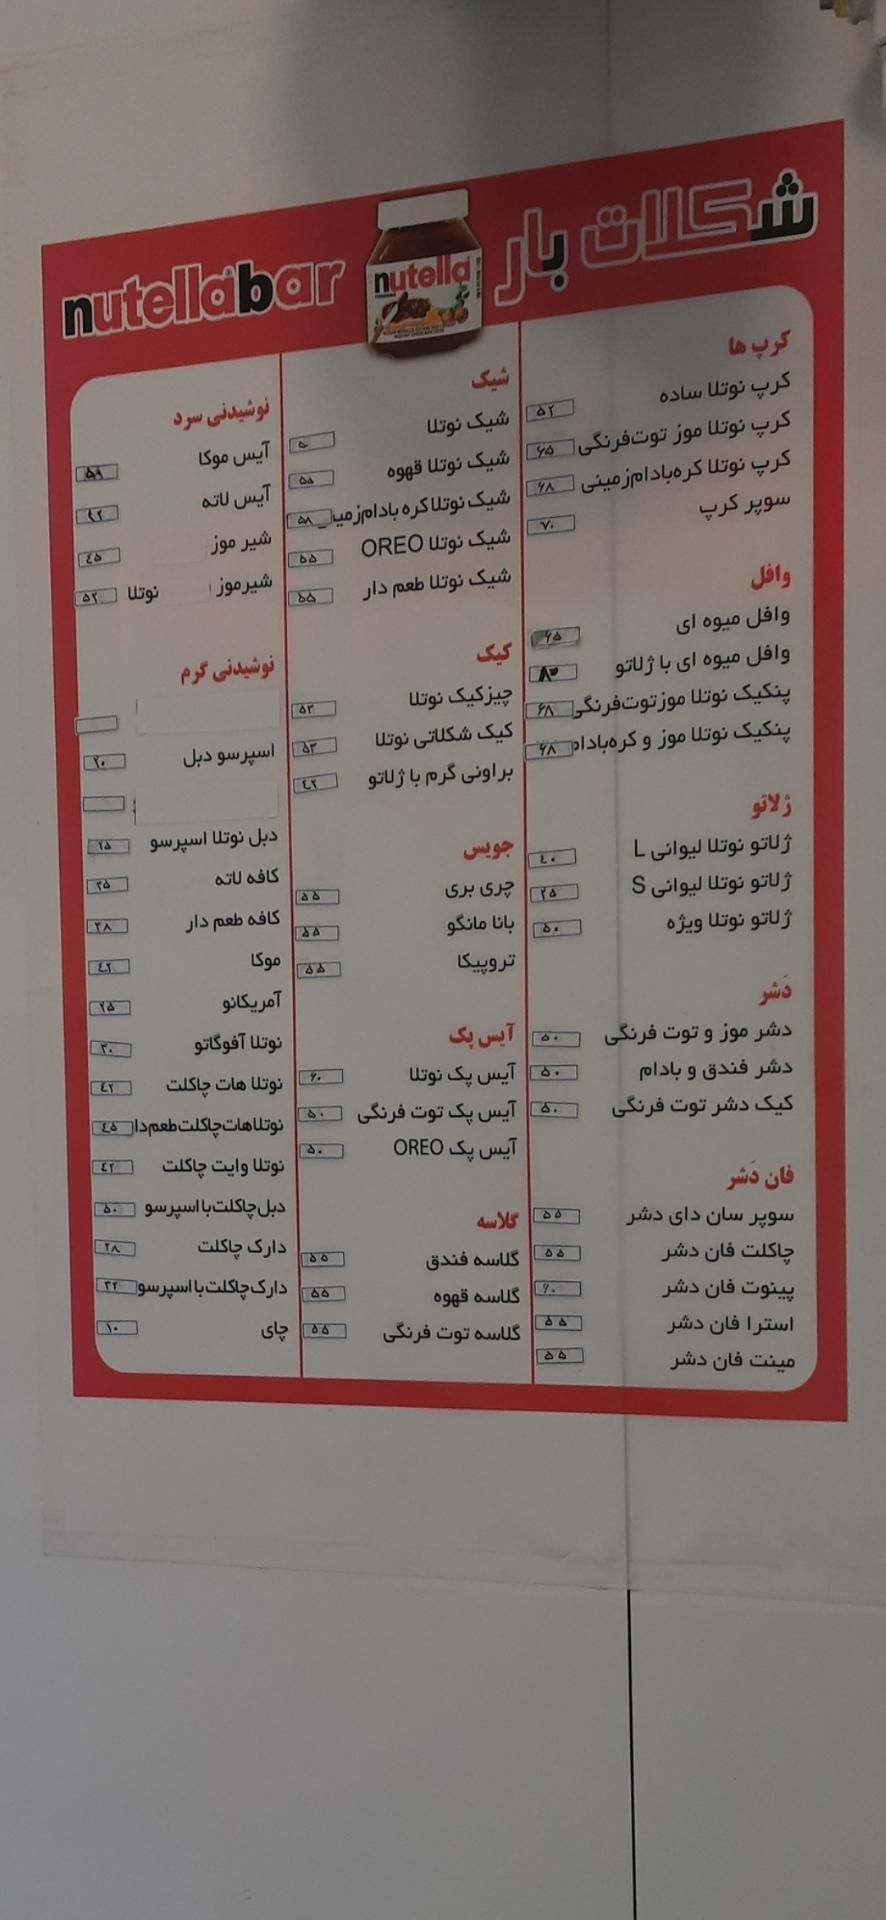 شکلات بار
nutella
nutellabar
کرپ ها
کرپ نوتلا ساده ۵۲
کرپ نوتلا موز توت‌فرنگی ۶۵
کرپ نوتلا کره‌بادام‌زمینی ۶۸
سوپر کرپ ۷۰
وافل
وافل میوه ای ۶۵
وافل میوه ای با ژلاتو
پنکیک نوتلا موزتوت‌فرنگی ۶۸
پنکیک نوتلا موز و کره‌بادام ۶۸
ژلاتو
ژلاتو نوتلا لیوانی L ۴۰
ژلاتو نوتلا لیوانی S ۲۵
ژلاتو نوتلا ویژه ۵۰
دَشر
دشر موز و توت فرنگی ۵۰
دشر فندق و بادام ۵۰
کیک دشر توت فرنگی ۵۰
فان دَشر
سوپر سان دای دشر ۵۵
چاکلت فان دشر ۵۵
پینوت فان دشر ۶۰
استرا فان دشر ۵۵
مینت فان دشر ۵۵
شیک
شیک نوتلا
شیک نوتلا قهوه ۵۵
شیک نوتلا کره بادام‌زمی ۵۸
شیک نوتلا OREO ۵۵
شیک نوتلا طعم دار ۵۵
کیک
چیزکیک نوتلا ۵۳
کیک شکلاتی نوتلا ۵۳
براونی گرم با ژلاتو ۴۲
جویس
چری بری ۵۵
بانا مانگو ۵۵
تروپیکا ۵۵
آیس پک
آیس پک نوتلا ۶۰
آیس پک توت فرنگی ۵۰
آیس پک OREO ۵۰
گلاسه
گلاسه فندق ۵۵
گلاسه قهوه ۵۵
گلاسه توت فرنگی ۵۵
نوشیدنی سرد
آیس موکا
آیس لاته ۴۲
شیر موز ۴۵
شیرموز نوتلا ۵۲
نوشیدنی گرم
اسپرسو دبل ۲۰
دبل نوتلا اسپرسو ۲۵
کافه لاته ۳۵
کافه طعم دار ۳۸
موکا ۴۲
آمریکانو ۲۵
نوتلا آفوگاتو ۳۰
نوتلا هات چاکلت ۴۲
نوتلاهات‌چاکلت‌طعم‌دا ۴۵
نوتلا وایت چاکلت ۴۲
دبل‌چاکلت‌با‌اسپرسو ۵۰
دارک چاکلت ۲۸
دارک‌چاکلت‌با‌اسپرسو ۳۲
چای ۱۰